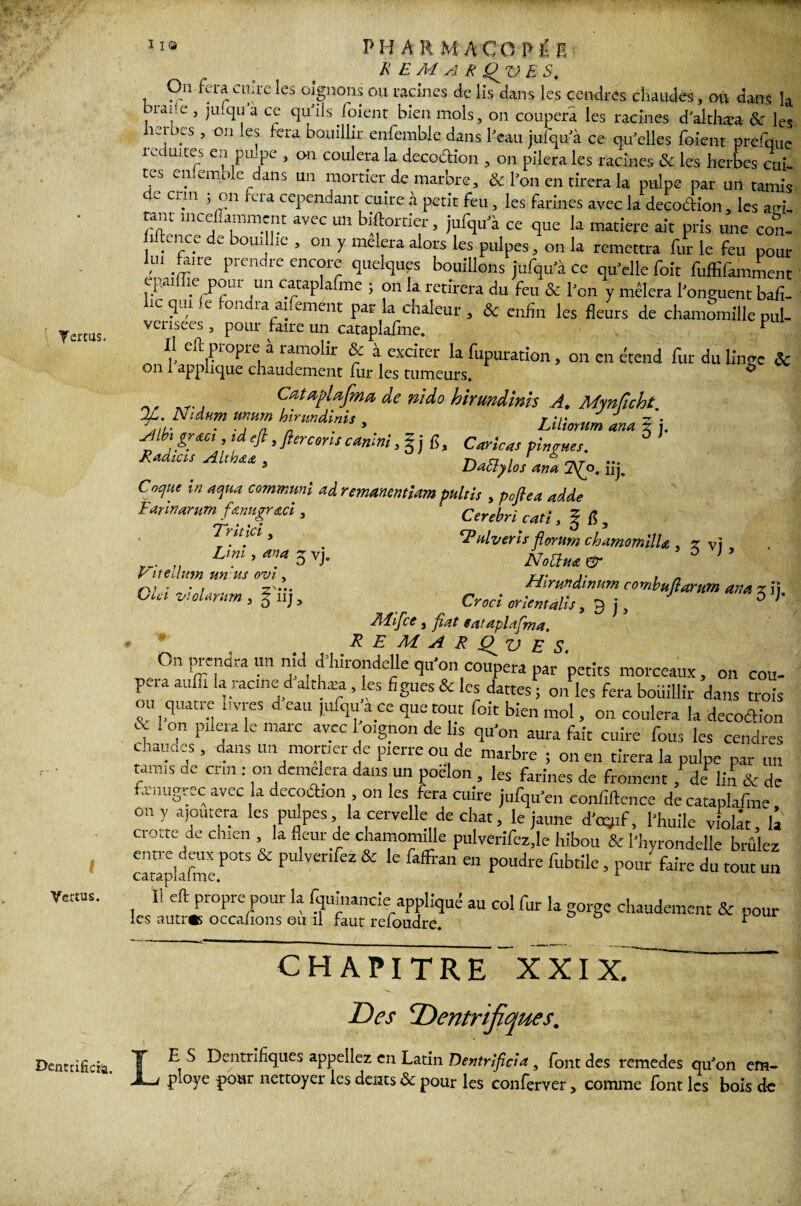 110 PHARMACOPÉE
REMARQVES.
On fera cuire les oignons ou racines de lis dans les cendres chaudes, ou dans la
braise, jusqu'à ce qu'ils soient bien mols, on coupera les racines d'althæa & les
herbes, on les fera bouillir ensemble dans l'eau jusqu'à ce qu'elles soient presque
reduites en pulpe, on coulera la decoction, on pilera les racines & les herbes cui-
tes ensemble dans un mortier de marbre, & l'on en tirera la pulpe par un tamis
de crin ; on fera cependant cuire à petit feu, les farines avec la decoction, les agi-
tant incessamment avec un bistortier, jusqu'à ce que la matiere ait pris une con-
sistence de bouillie, on y mêlera alors les pulpes, on la remettra sur le feu pour
lui faire prendre encore quelques bouillons jusqu'à ce qu'elle soit suffisamment
épaissie pour un cataplasme ; on la retirera du feu & l'on y mêlera l'onguent basi-
lic qui se fondra aisement par la chaleur, & enfin les fleurs de chamomille pul-
verisées, pour faire un cataplasme.
Vertus.
Il est propre à ramolir & à exciter la supuration, on en étend sur du linge &
on l'applique chaudement sur les tumeurs.
Cataplasma de nido hirundinis A. Mynsicht.
♃. Nidum unum hirundinis,
Albi græci, id est, stercoris canini, ℥j ß,
Radicis Althææ,
Liliorum ana ℥ j.
Caricas pingues.
Dactylos ana No. iij.
Coque in aqua communi ad remanentiam pultis, postea adde
Farinarum fænugræci,
Tritici,
Lini, ana ʒ vj.
Vitellum unius ovi,
Olei violarum, ℥ iij,
Cerebri cati, ℥ ß,
Pulveris florum chamomillæ, ʒ vj,
Noctuæ &
Hirundinum combustarum ana ʒ ij.
Croci orientalis, ℈ j,
Misce, fiat cataplasma.
REMARQVES.
On prendra un nid d'hirondelle qu'on coupera par petits morceaux, on cou-
pera aussi la racine d'althæa, les figues & les dattes ; on les fera boüillir dans trois
ou quatre livres d'eau jusqu'à ce que tout soit bien mol, on coulera la decoction
& l'on pilera le marc avec l'oignon de lis qu'on aura fait cuire sous les cendres
chaudes, dans un mortier de pierre ou de marbre ; on en tirera la pulpe par un
tamis de crin : on demêlera dans un poëlon, les farines de froment, de lin & de
fænugrec avec la decoction, on les fera cuire jusqu'en consistence de cataplasme,
on y ajoutera les pulpes, la cervelle de chat, le jaune d'œuf, l'huile violat, la
crotte de chien, la fleur de chamomille pulverisez, le hibou & l'hyrondelle brûlez
entre deux pots & pulverisez & le saffran en poudre subtile, pour faire du tout un
cataplasme.
Vertus.
Il est propre pour la squinancie appliqué au col sur la gorge chaudement & pour
les autres occasions où il faut resoudre.
CHAPITRE XXIX.
Des Dentrifiques.
Dentrificia.
LES Dentrifiques appellez en Latin Dentrificia, sont des remedes qu'on em-
ploye pour nettoyer les dents & pour les conserver, comme sont les bois de